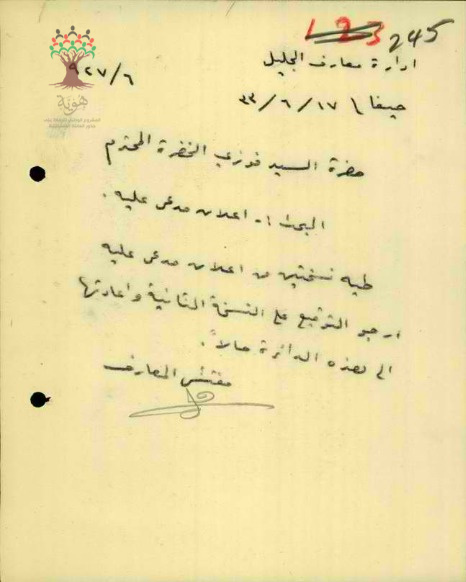 123 245
ادارة معارف الجليل
٩٢٧/٦
حيفا ١٧/٦/٣٣
هوية
حضرة السيد فوزي الخضرة المحترم
البحث :- اعلان مدعى عليه .
طيه نسختين من اعلان مدعى عليه
ارجو التوقيع على النسخة الثانية واعادتها
الى هذه الدائرة حالاً .
مفتش المعارف